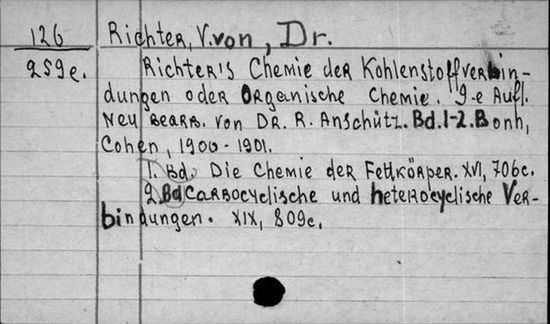 126 Richter, V. von, Dr.
259e. Richter's Chemie der Kohlenstoffverbin-
dungen oder Organische Chemie. 9-e Aufl.
Neu bearb. von Dr. R. Anschütz. Bd. 1-2. Bonn,
Cohen, 1900-1901.
1. Bd. Die Chemie der Fettkörper. XVI, 706c.
2. Bd Carbocyclische und heterocyclische Ver-
bindungen. XIX, 809c.